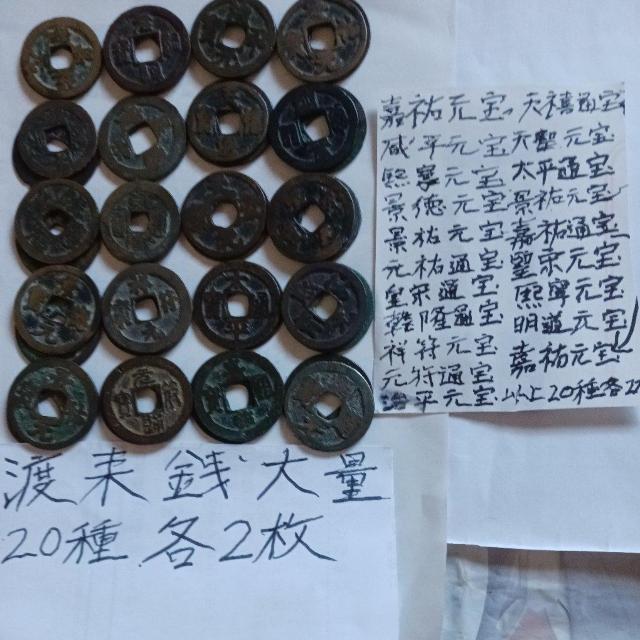 嘉祐元宝 天禧通宝
咸平元宝 天聖元宝
熙寧元宝 太平通宝
景徳元宝 景祐元宝
景祐元宝 嘉祐通宝
元祐通宝 聖宋元宝
皇宋通宝 熙寧元宝
隆通宝 明道元宝
祥符元宝 嘉祐元宝
元符通宝
平元宝 以上20種各2
渡来銭大量
20種 各2枚